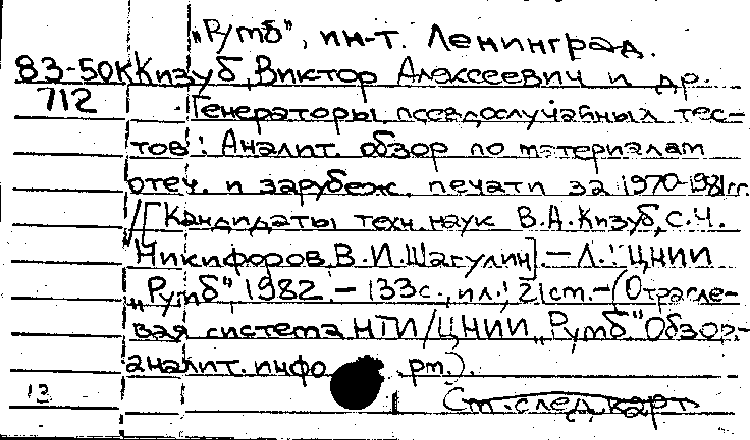 „Румб", ин-т. Ленинград.
83-50К Кизуб, Виктор Алексеевич и др.
712 Генераторы псевдослучайных тес-
тов: Аналит. обзор по материалам
отеч. и зарубеж. печати за 1970-1981гг.
/[Кандидаты техн. наук В.А.Кизуб, С.Ч.
Никифоров, В.И.Шагулин]. — Л.: ЦНИИ
„Румб", 1982. — 133с., ил.; 21см. — (Отрасле-
вая система НТИ/ЦНИИ „Румб". Обзор.-
аналит. инфо рм.).
13 См. след. карт.